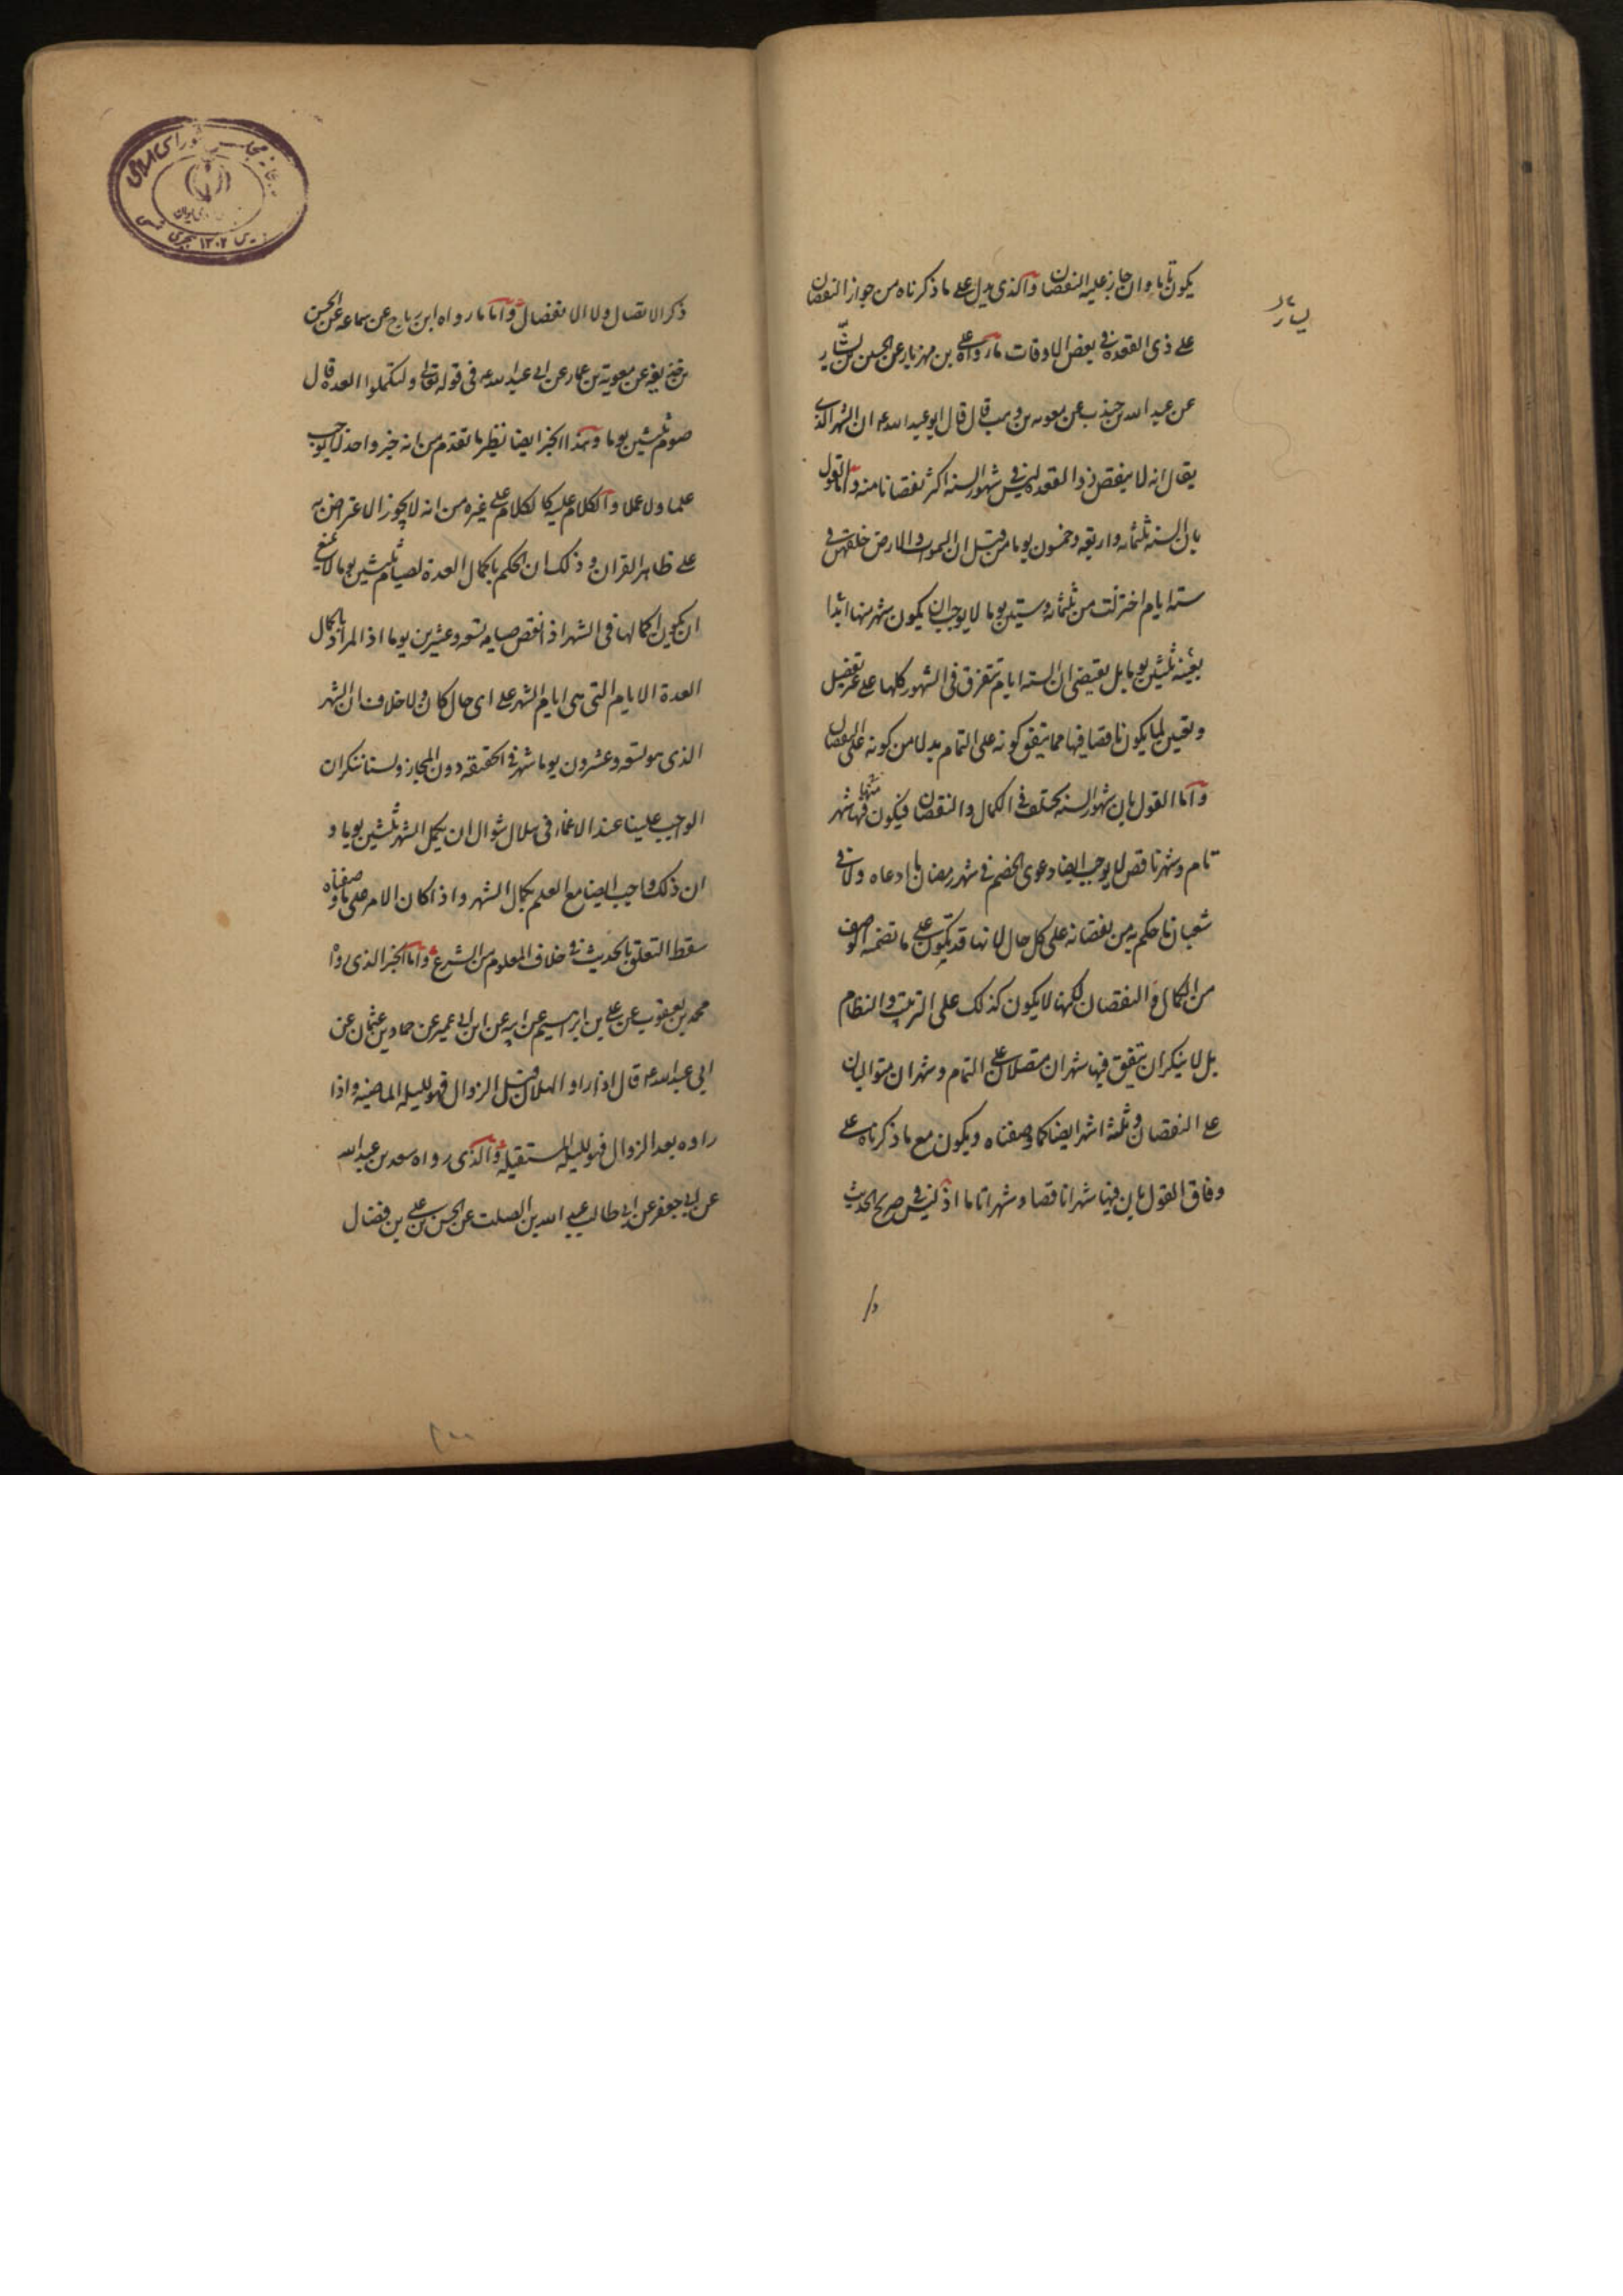 يكون تاما وان جاز عليه النقصان والذى يدل على ما ذكرناه من جواز النقصان
على ذى القعدة فى بعض الاوقات ما رواه على بن مهزيار عن الحسين بن بشار
يسار
عن عبد الله بن جندب عن معويه بن وهب قال قال ابو عبد الله ع ان الشهر الذى
يقال انه لا ينقص ذو القعدة ليس فى شهور السنه اكثر نقصانا منه واما القول
بان السنه ثلثمائه واربعه وخمسون يوما من قبل ان السموات والارض خلقهن فى
سته ايام اختزلت من ثلثمائه وستين يوما لا يوجب ان يكون شهر منها ابدا
بعينه ثلثين يوما بل يقتضى ان الستة ايام تتفرق فى الشهور كلها على غير تفصيل
وتعيين لما يكون ناقصا فيها مما يتفق كونه على التمام بدلا من كونه على النقصان
واما القول بان شهور السنه يختلف فى الكمال والنقصان فيكون فيها شهر
منها
تام وشهر ناقص لا يوجب ايضا دعوى الخصم فى شهر رمضان ما ادعاه ولا فى
شعبان ما حكم به من نقصانه على كل حال لانها قد تكون على ما تضمنه الوصف
من الكمال والنقصان لكنها لا يكون كذلك على الترتيب والنظام
بل لا ينكر ان يتفق فيها شهران متصلان على التمام وشهران متواليان
على النقصان وثلثه اشهر ايضا كما وصفناه ويكون مع ما ذكرناه على
وفاق القول بان فيها شهرا ناقصا وشهرا تاما اذ ليس فى صريح الحديث
ذكر الاتصال ولا الانفصال واما ما رواه ابن رباح عن سماعه عن الحسن
بن حذيفه عن معويه بن عمار عن ابى عبد الله ع فى قوله تعالى ولتكملوا العدة قال
صوم ثلثين يوما وهذا الخبر ايضا نظير ما تقدم من انه خبر واحد لا يوجب
علما ولا عملا والكلام عليه كالكلام على غيره من انه لا يجوز الاعتراض به
على ظاهر القران وذلك ان الحكم باكمال العدة لصيام ثلثين يوما لا يمنع
ان يكون اكمالها فى الشهر اذا نقص صيام تسعه وعشرين يوما اذ المراد باكمال
العدة الايام التى هى ايام الشهر على اى حال كان ولا خلاف ان الشهر
الذى هو تسعه وعشرون يوما شهر فى الحقيقه دون المجاز ولسنا ننكر ان
الواجب علينا عند الاغماء فى هلال شوال ان يكمل الشهر ثلثين يوما و
ان ذلك واجب ايضا مع العلم بكمال الشهر واذا كان الامر على ما وصفناه
سقط التعلق بالحديث فى خلاف المعلوم من الشرع واما الخبر الذى رواه
محمد بن يعقوب عن على بن ابراهيم عن ابيه عن ابن ابى عمير عن حماد بن عثمان عن
ابى عبد الله ع قال اذا راو الهلال قبل الزوال فهو لليله الماضيه واذا
راوه بعد الزوال فهو لليله المستقبله والذى رواه سعد بن عبد الله
عن ابى جعفر عن ابى طالب عبد الله بن الصلت عن الحسن بن على بن فضال